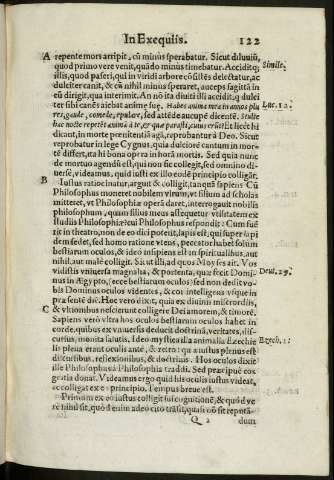 In Exequiis. 122
A repente mors arripit, cũ minus sperabatur. Sicut diluuiũ,
quod primo vere venit, quãdo minus timebatur. Acciditq;
Simile.
illis, quod passeri, qui in viridi arbore cõsistẽs delectatur, ac
dulciter canit, & cũ nihil minus speraret, auceps sagittã in
eũ dirigit, qua interimit. An nõ ita diuiti illi accidit, q dulci
ter sibi canẽs aiebat animę suę. Habes anima mea in annos plu
Luc. 12.
res, gaude, comede, epulare, sed attẽde aucupẽ dicentẽ. Stulte
hac nocte repetẽt animã à te, & quæ parasti, cuius erũt? Et licèt hi
dicant, in morte pœnitẽtiã agã, reprobantur à Deo. Sicut
reprobatur in lege Cygnus, quia dulciorẽ cantum in mor-
tẽ differt, ita hi bona opera in horã mortis. Sed quia nunc
de mortuo agendũ est, qui non sic collegit, sed omnino di-
uersè, videamus, quid iustus ex illo eodẽ principio colligãt.
B Iustus ratiocinatur, arguit & colligit, tanquã sapiens Cũ
Philosophus moneret nobilem virum, vt filium ad scholas
mitteret, vt Philosophiæ operã daret, interrogauit nobilis
Philosophum, quam filius meus assequetur vtilitatem ex
studiis Philosophiæ? cui Philosophus respondit: Cum fue
rit in theatro, non de eo dici poterit, lapis est, qui super lapi
dem sedet, sed homo ratione vtens, peccator habet solum
bestiarum oculos, & ideo insipiens est in spiritualibus, aut
nihil, aut malè colligit. Sũ vt illi, ad quos Moyses ait. Vos
vidistis vniuersa magnalia, & portenta, quæ fecit Domi-
Deut. 29.
nus in Ægypto, (ecce bestiarum oculos) sed non dedit vo-
bis Dominus oculos videntes, & cor intelligens vsque in
præsentẽ diẽ. Hoc vero dixit, quia ex diuinis misericordiis,
C & vltionibus nescierunt colligere Dei amorem, & timorẽ.
Sapiens verò vltra hos oculos bestiarum oculos habet in
corde, quibus ex vniuersis deducit doctrinã, veritates, dis-
cursus, monita salutis. Ideo mystica illa animalia Ezechie
Ezech. 1.
lis plena erant oculis antè, & retrò: quia iustus plenus est
discursibus, reflexionibus, & doctrinis. Hos oculos dixit
ille Philosophus à Philosophia traddi. Sed præcipuè eos
gratia donat. Videamus ergo quid his oculis iustus videat,
ac colligat ex eo principio. Tempus breue est.
Primum ex eo iustus colligit sui cognitionẽ, & quòd ve
rè nihil sit, quòd enim adeo citò trãsit, quasi nõ sit reputã-
Q 2 dum